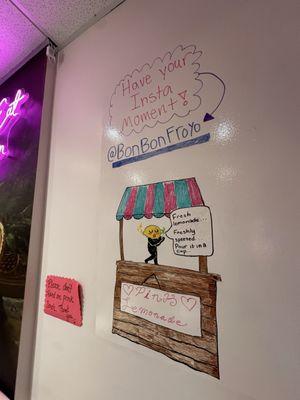 Have your
Insta
Moment!
@BonBonFroyo
Fresh
lemonade...
Freshly
Squeezed
Pour it in a
Cup.
Pinky
Lemonade
Please don't
Thank
you